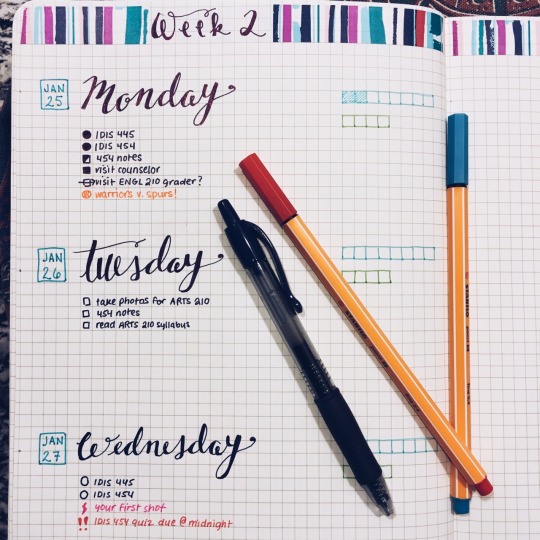 Week 2
JAN
25
Monday
IDIS 445
IDIS 454
454 notes
visit counselor
visit ENGL 210 grader?
warriors v. spurs!
JAN
26
tuesday
take photos for ARTS 210
454 notes
read ARTS 210 syllabus
JAN
27
Wednesday
IDIS 445
IDIS 454
your first shot
!! IDIS 454 quiz due @ midnight